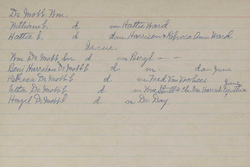 De Mott Wm.
William L. d Hattie Ward
Hattie L. d dau Harrison & Rebecca Ann Ward
Issue
Wm De Mott m Beryl - -
Benj Harrison De Mott d m dau June
Rebecca De Mott d m Fred Van Voorhees
Etta De Mott d m
Hazel De Mott d m Dr. Day